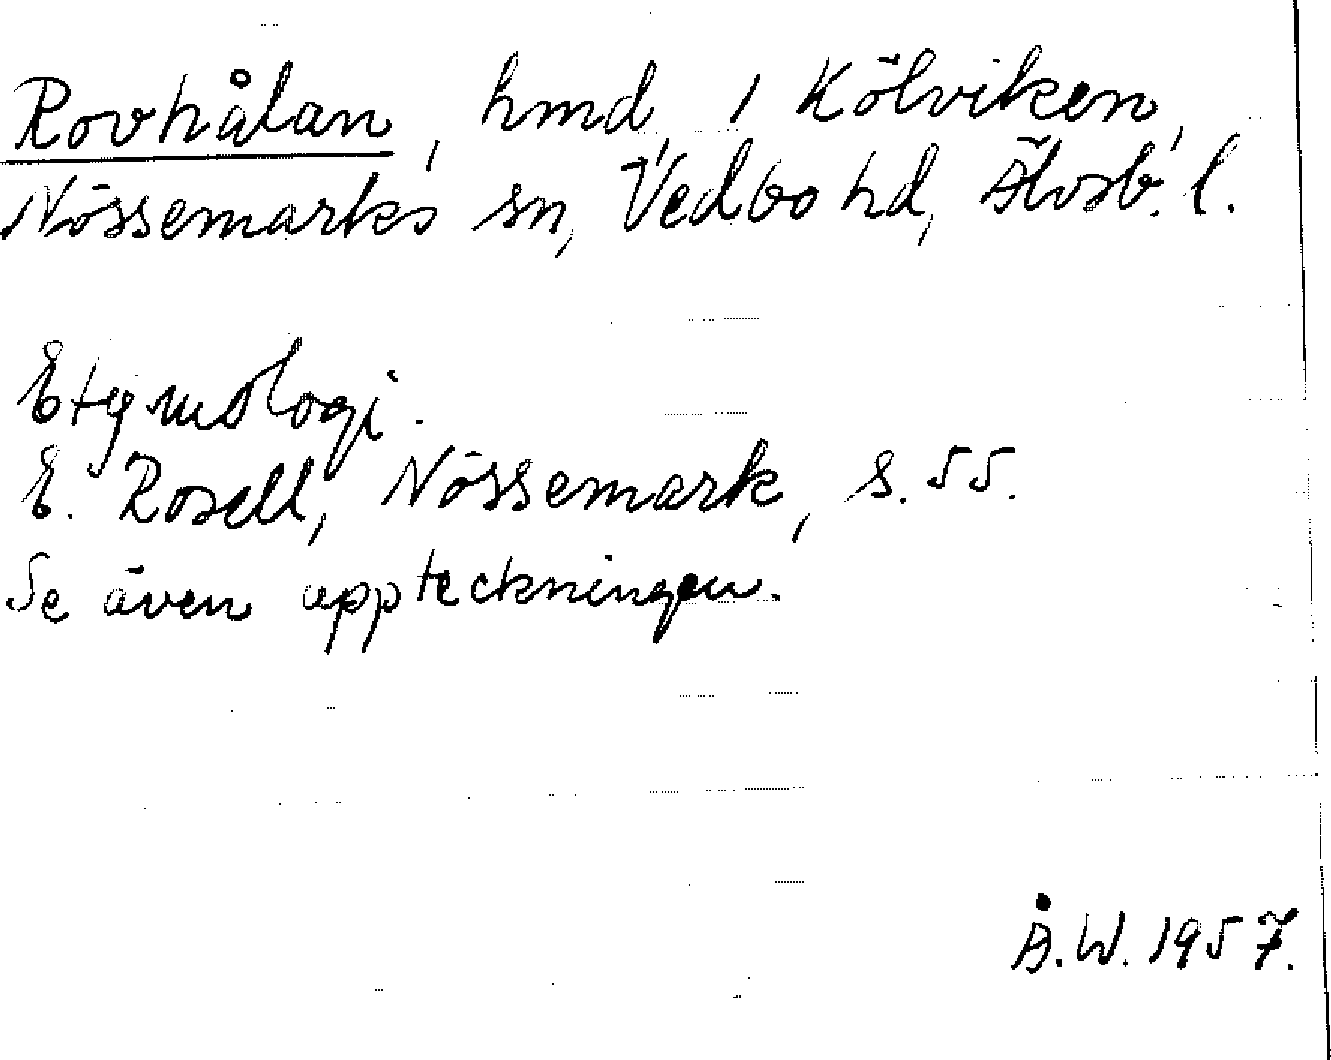 Rovhålan, hmd, i Kölviken,
Nössemarks sn, Vedbo hd, Älvsb. l.
Etymologi.
E. Rosell, Nössemark, s. 55.
Se även uppteckningen.
Å.W. 1957.